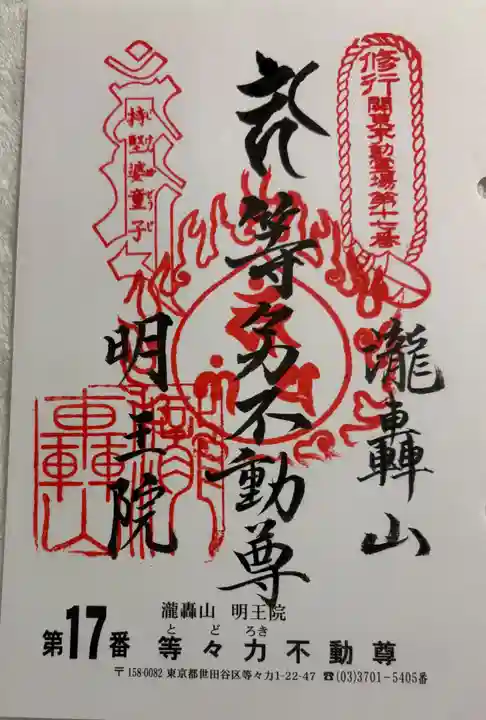 修行
関東不動霊場第十七番
瀧轟山
等々力不動尊
明王院
瀧轟山 明王院
とどろき
第17番 等々力不動尊
〒158-0082 東京都世田谷区等々力1-22-47 ☎(03)3701-5405番